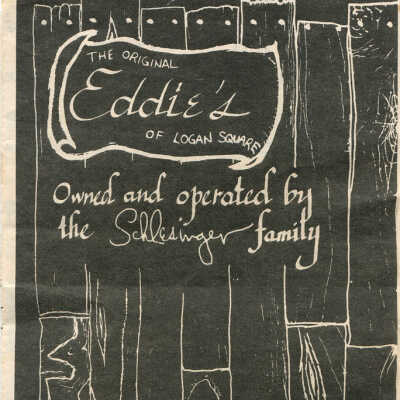 THE ORIGINAL
Eddie's
OF LOGAN SQUARE
Owned and operated by
the Schlesinger family